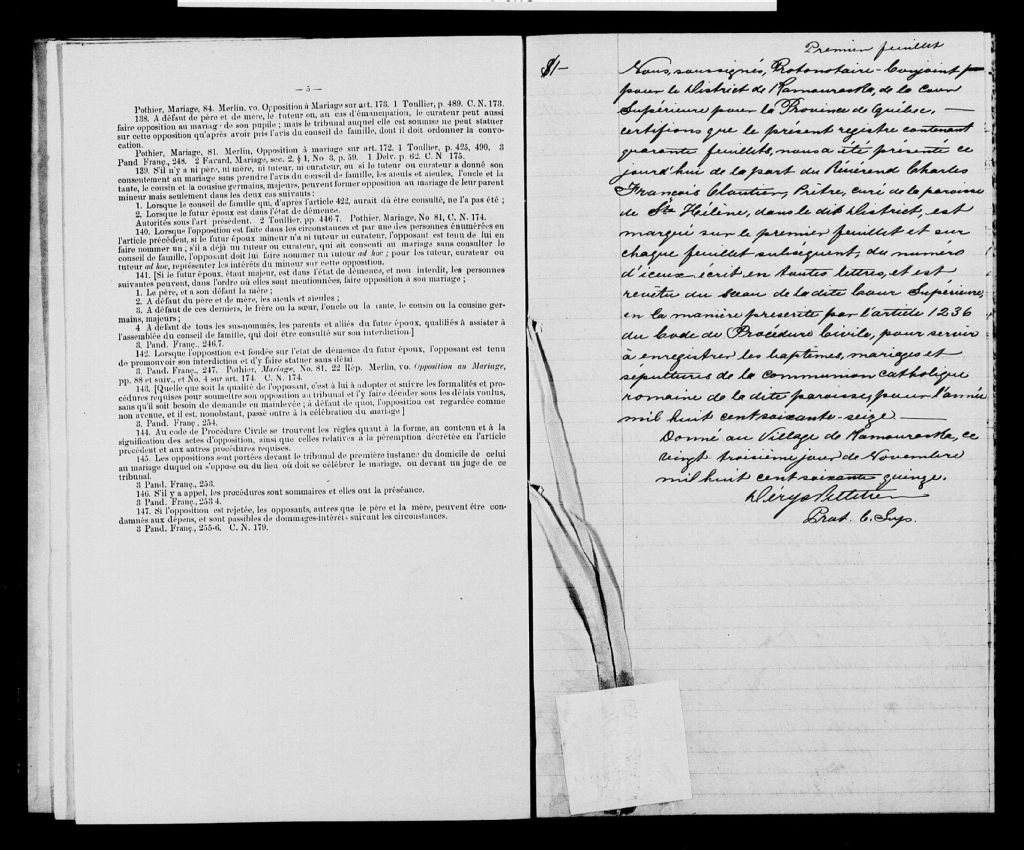 — 5 —
Pothier, Mariage, 84. Merlin, vo. Opposition à Mariage sur art. 173. 1 Toullier, p. 489. C. N. 173.
138. A défaut de père et de mère, le tuteur ou, au cas d'émancipation, le curateur peut aussi
faire opposition au mariag· de son pupile ; mais le tribunal auquel elle est soumise ne peut statuer
sur cette opposition qu'après avoir pris l'avis du conseil de famille, dont il doit ordonner la convo-
cation.
Pothier, Mariage, 81. Merlin, Opposition à mariage sur art. 172. 1 Toullier, p. 425, 490. 3
Pand Franç., 248. 2 Favard, Mariage, sec. 2, § 1, No 3, p. 59. 1 Delv. p. 62. C. N 175.
139. S'il n'y a ni père, ni mère, ni tuteur, ni curateur, ou si le tuteur ou curateur a donné son
consentement au mariage sans prendre l'avis du conseil de famille, les aïeuls et aïeules, l'oncle et la
tante, le cousin et la cousine germains, majeurs, peuvent former opposition au mariage de leur parent
mineur mais seulement dans les deux cas suivants :
1. Lorsque le conseil de famille qui, d'après l'article 422, aurait dû être consulté, ne l'a pas été ;
2. Lorsque le futur époux est dans l'état de démence.
Autorités sous l'art précédent. 2 Toullier, pp. 446-7. Pothier, Mariage, No 81, C. N. 174.
140. Lorsque l'opposition est faite dans les circonstances et par une des personnes énumérées en
l'article précédent, si le futur époux mineur n'a ni tuteur ni curateur, l'opposant est tenu de lui en
faire nommer un ; s'il a déjà un tuteur ou curateur, qui ait consenti au mariage sans consulter le
conseil de famille, l'opposant doit lui faire nommer un tuteur ad hoc ; pour les tuteur, curateur ou
tuteur ad hoc, représenter les intérêts du mineur sur cette opposition.
141. [Si le futur époux, étant majeur, est dans l'état de démence, et non interdit, les personnes
suivantes peuvent, dans l'ordre où elles sont mentionnées, faire opposition à son mariage ;
1. Le père, et à son défaut la mère ;
2. A défaut du père et de mère, les aïeuls et aïeules ;
3. A défaut de ces derniers, le frère ou la sœur, l'oncle ou la tante, le cousin ou la cousine ger-
mains, majeurs ;
4 A défaut de tous les sus-nommés, les parents et alliés du futur époux, qualifiés à assister à
l'assemblée du conseil de famille, qui doit être consulté sur son interdiction.]
3. Pand. Franç., 246,7.
142. Lorsque l'opposition est fondée sur l'état de démence du futur époux, l'opposant est tenu
de promouvoir son interdiction et d'y faire statuer sans délai
3. Pand. Franç., 247. Pothier, Mariage, No. 81. 22 Rép. Merlin, vo. Opposition au Mariage,
pp. 88 et suiv., et No. 4 sur art. 174. C. N. 174.
143. [Quelle que soit la qualité de l'opposant, c'est à lui à adopter et suivre les formalités et pro-
cédures requises pour soumettre son opposition au tribunal et l'y faire décider sous les délais voulus,
sans qu'il soit besoin de demande en mainlevée ; à défaut de quoi, l'opposition est regardée comme
non avenue, et il est, nonobstant, passé outre à la célébration du mariage ]
3. Pand. Franç., 254.
144. Au code de Procédure Civile se trouvent les règles quant à la forme, au contenu et à la
signification des actes d'opposition, ainsi que celles relatives à la péremption décrétée en l'article
précédent et aux autres procédures requises.
145. Les oppositions sont portées devant le tribunal de première instance du domicile de celui
au mariage duquel on s'oppose ou du lieu où doit se célébrer le mariage, ou devant un juge de ce
tribunal.
3 Pand. Franç., 253.
146. S'il y a appel, les procédures sont sommaires et elles ont la préséance.
3 Pand. Franç., 253 4.
147. Si l'opposition est rejetée, les opposants, autres que le père et la mère, peuvent être con-
damnés aux dépens, et sont passibles de dommages-intérêts suivant les circonstances.
3 Pand. Franç., 255-6. C. N. 179.
Premier feuillet
$1-
Nous, soussignés, Protonotaire-Conjoint
pour le District de Kamouraska, de la cour
Supérieure pour la Province de Québec, —
certifions que le présent registre contenant
quarante feuillets, nous a été présenté ce
jourd'hui de la part du Révérend Charles
François Cloutier, Prêtre, curé de la paroisse
de Ste Hélène, dans le dit District, est
marqué sur le premier feuillet et sur
chaque feuillet subséquent, du numéro
d'iceux écrit en toutes lettres, et est
revêtu du sceau de la dite Cour Supérieure,
en la manière prescrite par l'article 1236
du Code de Procédure Civile, pour servir
à enregistrer les baptêmes, mariages et
sépultures de la communion catholique
romaine de la dite paroisse, pour l'année
mil huit cent soixante-seize —
Donné au Village de Kamouraska, ce
vingt troisième jour de Novembre
mil huit cent soixante quinze.
Déry & Pelletier
Prot. C. Sup.